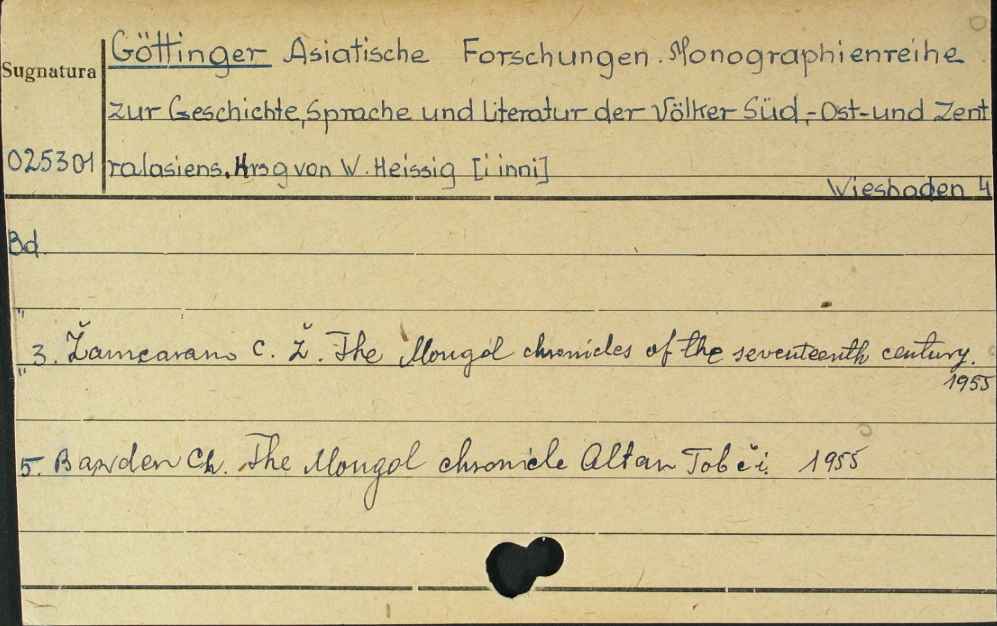 Göttinger Asiatische Forschungen. Monographienreihe
Sugnatura
zur Geschichte, Sprache und Literatur der Völker Süd,-Ost-und Zent
025301 ralasiens. Hrsg von W. Heissig [i inni]
Wiesbaden 4
Bd.
"
3. Žamcarano C. Ž. The Mongol chronicles of the seventeenth century.
" 1955
5. Bawden Ch. The Mongol chronicle Altan Tobči. 1955